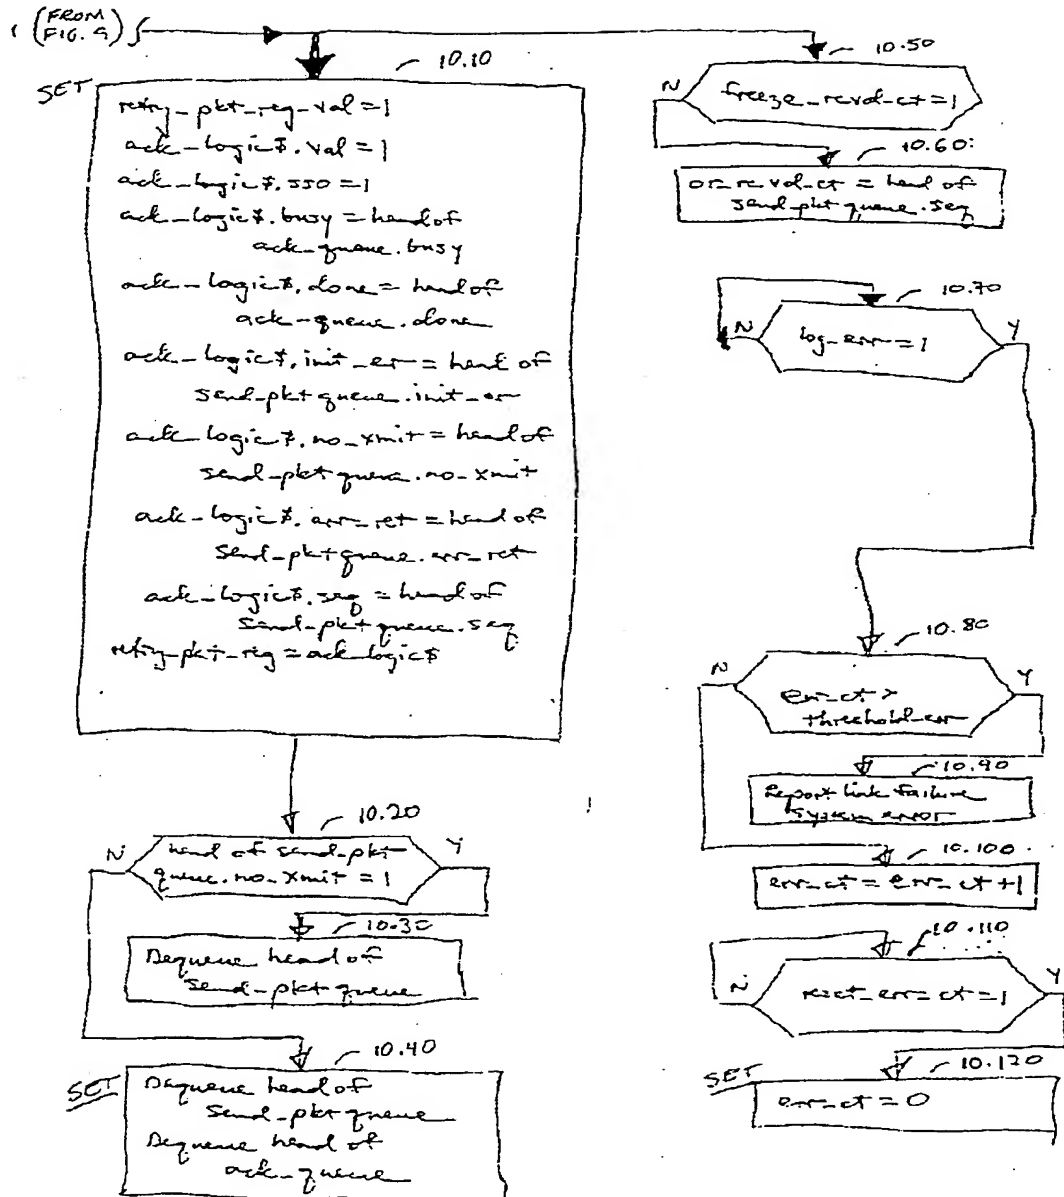 1 (FROM
FIG. 9)
10.10
SET
retry_pkt_reg_val = 1
ack_logic$.val = 1
ack_logic$.sso = 1
ack_logic$.busy = head of
ack_queue.busy
ack_logic$.done = head of
ack_queue.done
ack_logic$.init_er = head of
send_pkt queue.init_or
ack_logic$.no_xmit = head of
send_pkt queue.no_xmit
ack_logic$.err_ret = head of
send_pkt queue.err_ret
ack_logic$.seq = head of
send_pkt queue.seq
retry_pkt_reg = ack logic$
10.20
N
head of send_pkt
queue.no_xmit = 1
Y
10.30
Dequeue head of
send_pkt queue
10.40
SET
Dequeue head of
send_pkt queue
Dequeue head of
ack_queue
10.50
N
freeze_rcvd_ct = 1
10.60
= head of
send_pkt queue.seq
10.70
N
log_err = 1
Y
10.80
N
err_ct >
threshold_err
Y
10.90
Report link failure
system error
10.100
err_ct = err_ct + 1
10.110
N
reset_err_ct = 1
Y
10.120
SET
err_ct = 0